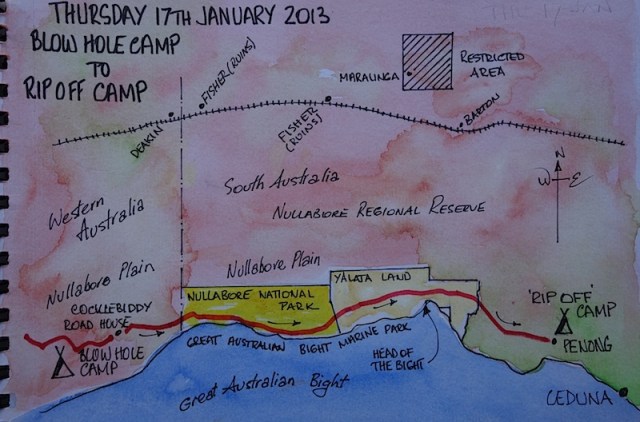 THURSDAY 17TH JANUARY 2013
BLOW HOLE CAMP
TO
RIP OFF CAMP
FISHER (RUINS)
MARALINGA
RESTRICTED
AREA
DEAKIN
FISHER
(RUINS)
BARTON
N
W E
Western
Australia
South Australia
NULLABORE REGIONAL RESERVE
Nullabore Plain
Nullabore Plain
YALATA LAND
NULLABORE NATIONAL
PARK
COCKLEBIDDY
ROAD HOUSE
'RIP OFF'
CAMP
BLOW HOLE
CAMP
GREAT AUSTRALIAN BIGHT MARINE PARK
HEAD OF
THE BIGHT
PENONG
Great Australian Bight
CEDUNA